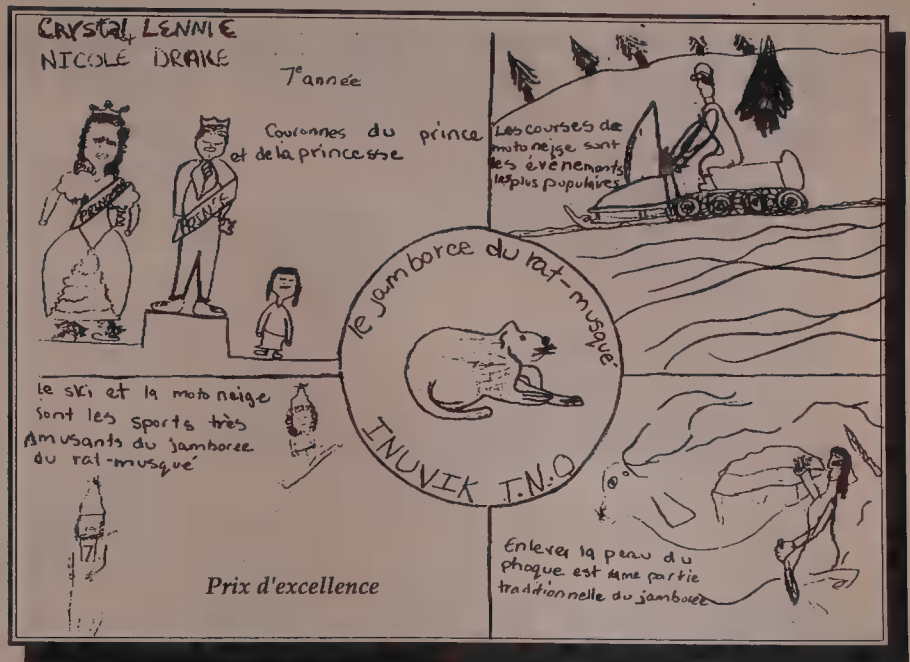 CRYSTAL LENNIE
NICOLE DRAKE
7e année
Couronnes du prince
et de la princesse
PRINCESSE
PRINCE
Les courses de
motoneige sont
les événements
les plus populaires
le jamboree du rat-musqué
INUVIK T.N.O
le ski et la motoneige
sont les sports très
Amusants du jamboree
du rat-musqué
Prix d'excellence
Enlever la peau du
phoque est une partie
traditionnelle du jamboree